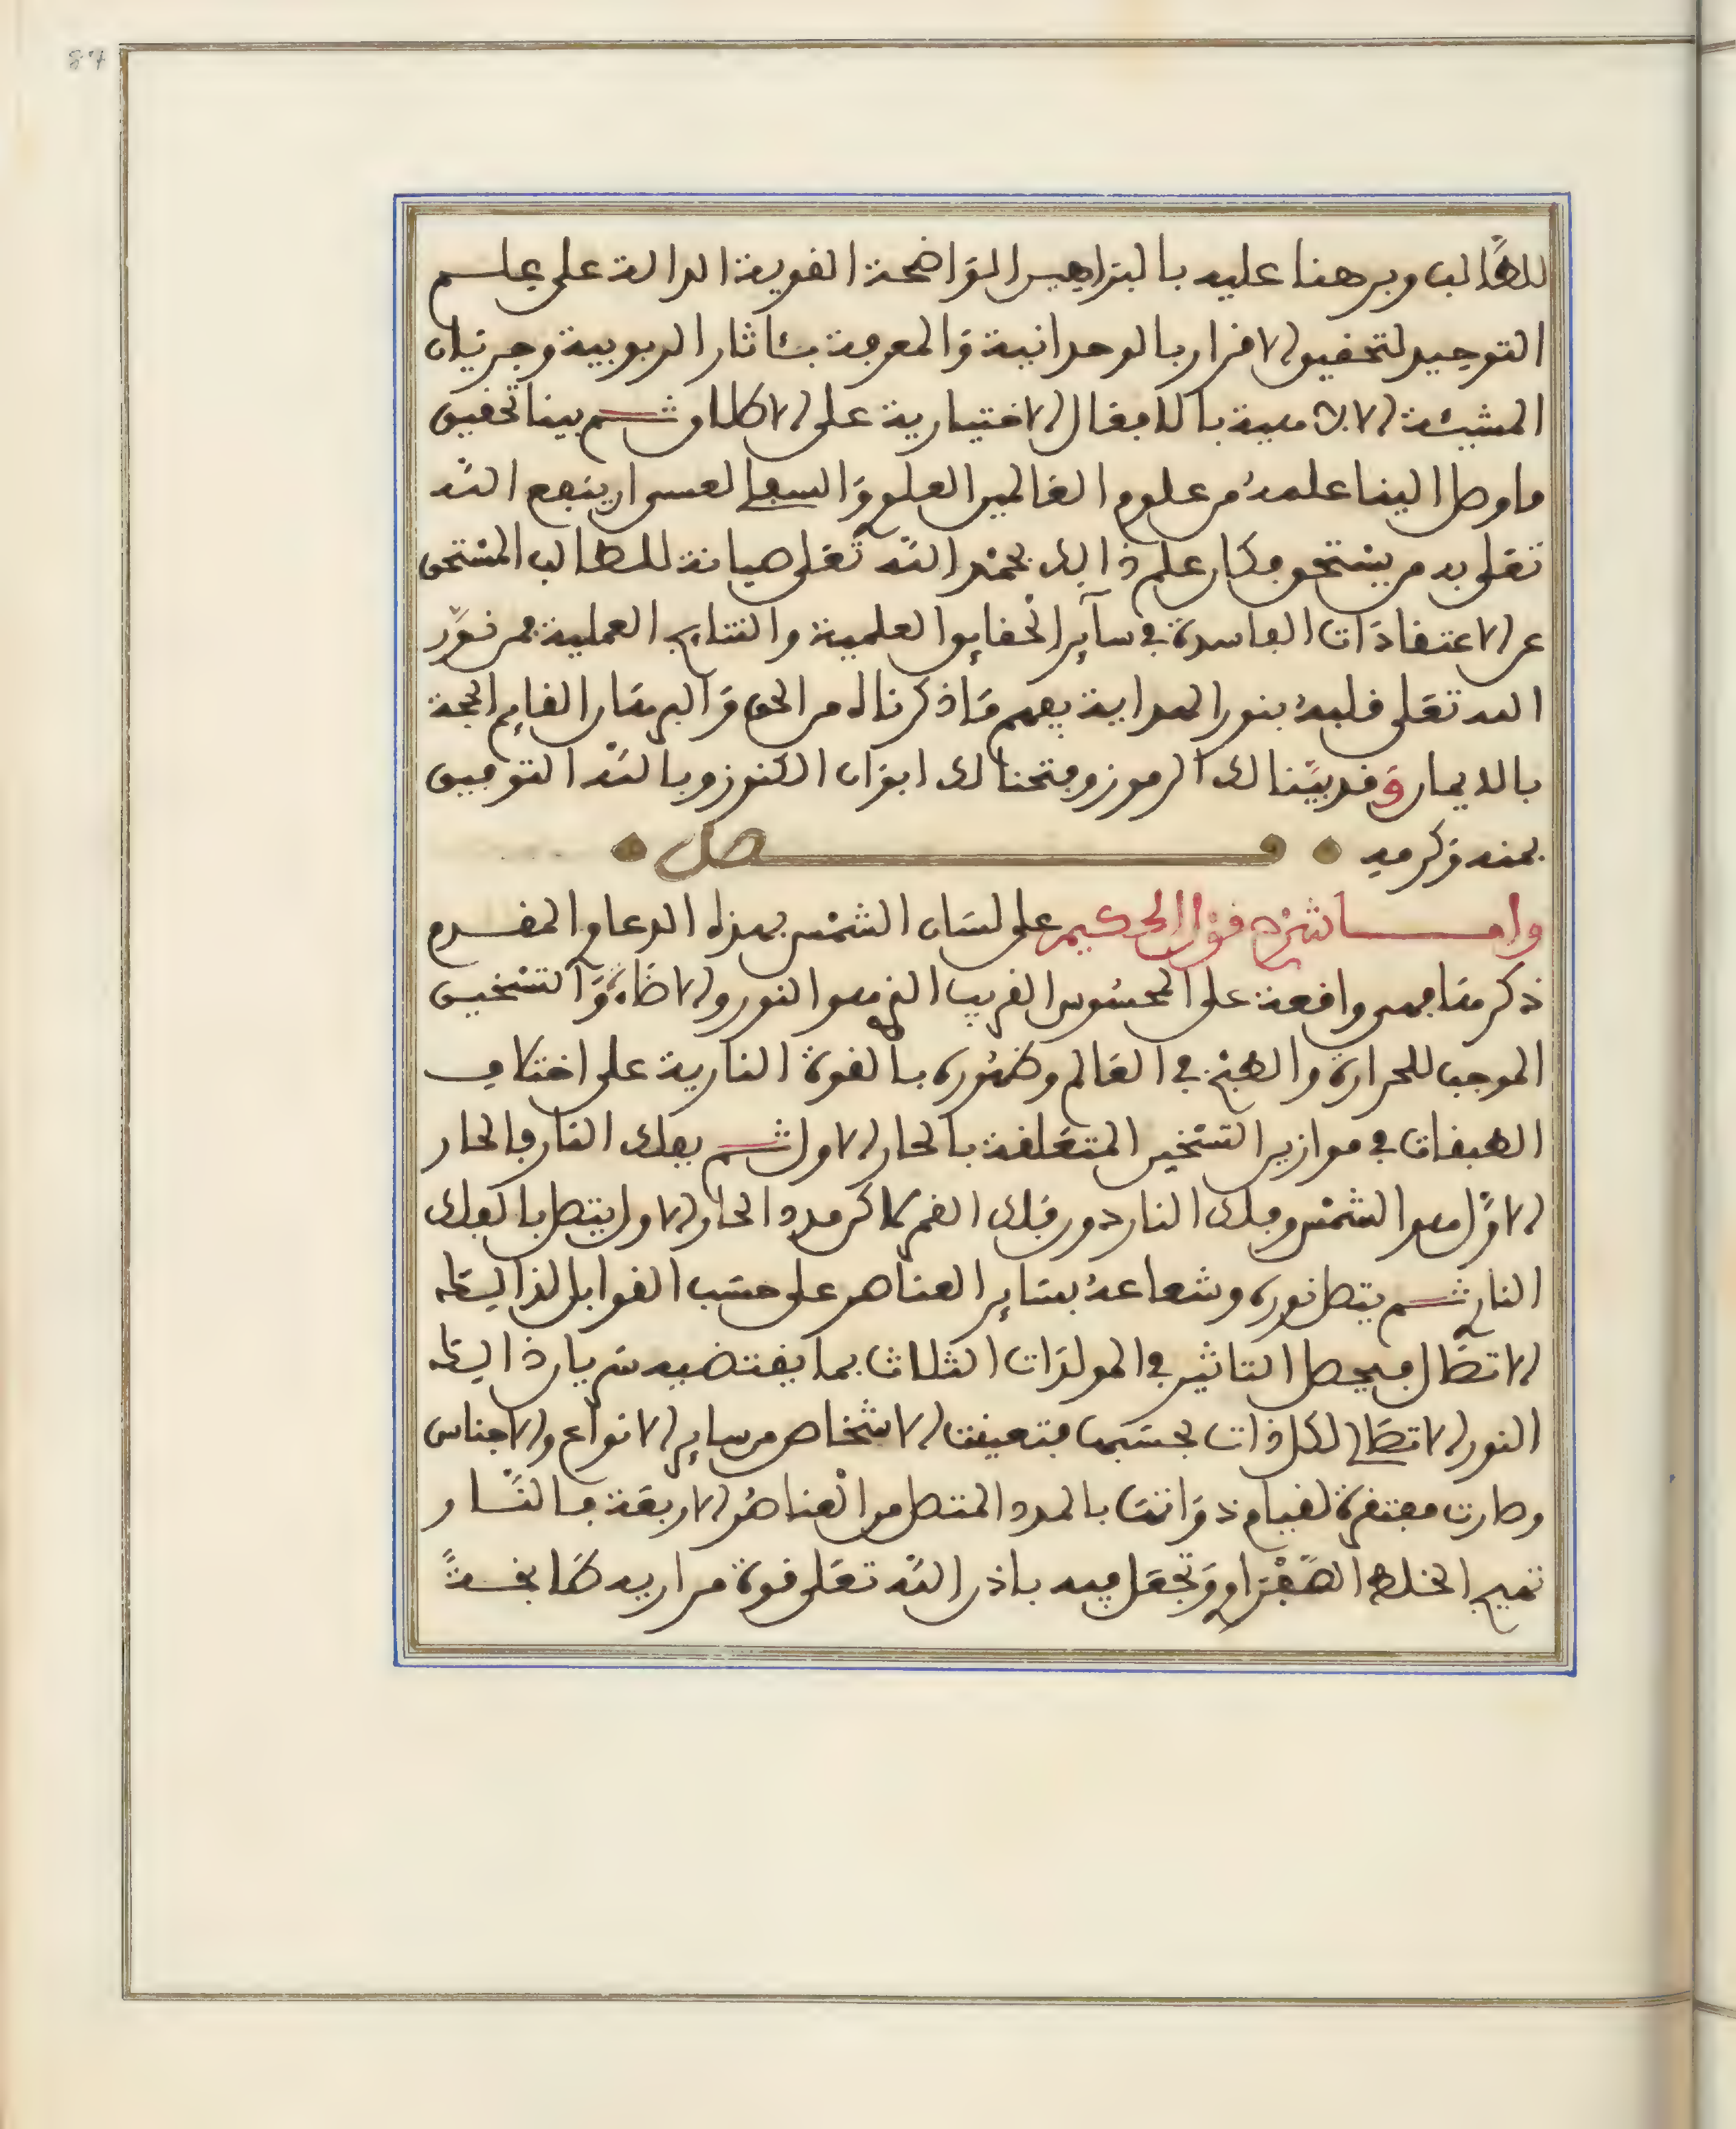 87
للطالب وبرهنا عليه بالبراهين الواضحة القوية الدالة على علم
التوحيد لتحقيق الاقرار بالوحدانية والمعرفة بئاثار الربوبية وجريان
المشيئة الالاهية بالافعال الاختيارية على الاطلاق ثم بينا تحقيق
ما وصل الينا علمه من علوم العالمين العلوي والسفلي لعسى ان ينفع الله
تعلى به من يستحق فكان علم ذالك بحمد الله تعلى صيانة للطالب المستحق
عن الاعتقادات الفاسدة في سآير الحقايق العلمية والنتايج العملية فمن نور
الله تعلى قلبه بنور الهداية يفهم ما ذكرناه من الحق والبرهان القايم الحجة
بالايمان وقد بينا لك الرموز وفتحنا لك ابواب الكنوز وبالله التوفيق
بمنه وكرمه فصل
واما شرح قول الحكيم على لسان الشمس بهذه الدعاوي المقدم
ذكرها فهي واقعة على المحسوس القريب الذي هو النور والاضاءة والتسخين
الموجب للحرارة والطبخ في العالم وظهوره بالقوة النارية على اختلاف
الطبقات في موازين التسخين المتعلقة بالحار الاول ثم بفلك النار فالحار
الاول هو الشمس وفلك النار دون فلك القمر لاكن مدد الحار الاول يتصل بالفلك
الناري ثم يتصل نوره وشعاعه بساير العناصر على حسب القوابل لذالك
الاتصال فيحصل التاثير في المولدات الثلاث بما يقتضيه سريان ذالك
النور الاتصالي لكل ذات بحسبها فتعينت الاشخاص من ساير الانواع والاجناس
وصارت مفتقرة لقيام ذواتها بالمدد المتصل من العناصر الاربعة فالنار
تهيج الخلط الصفراوي وتجعل فيه باذن الله تعلى قوة مرارية طابخة